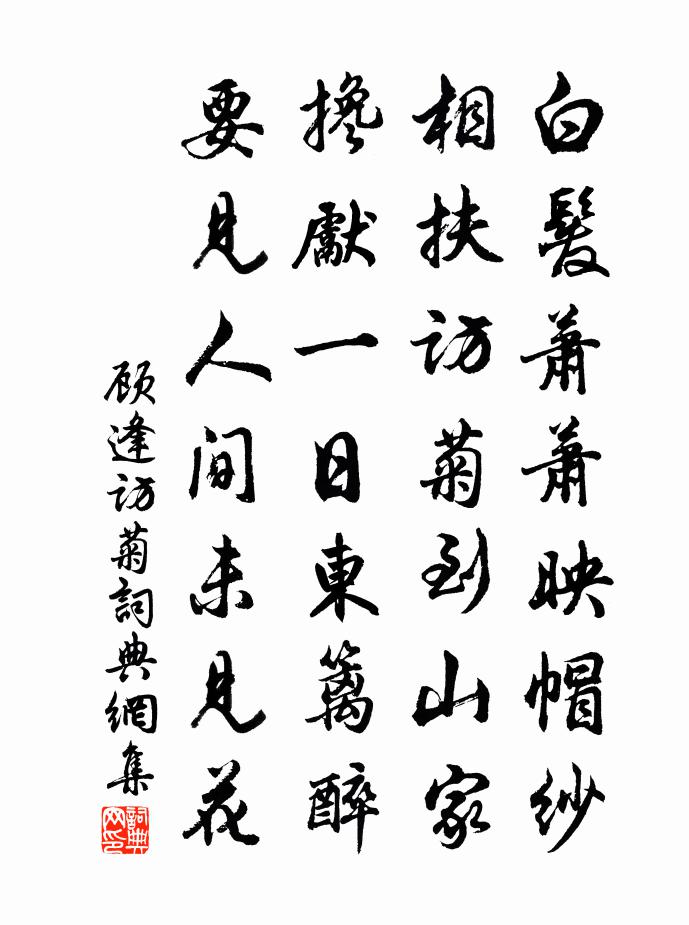 白髮蕭蕭映帽紗
相扶訪菊到山家
攙獻一日東籬醉
要見人間未見花
顾逢訪菊詞典網集
詞典网印